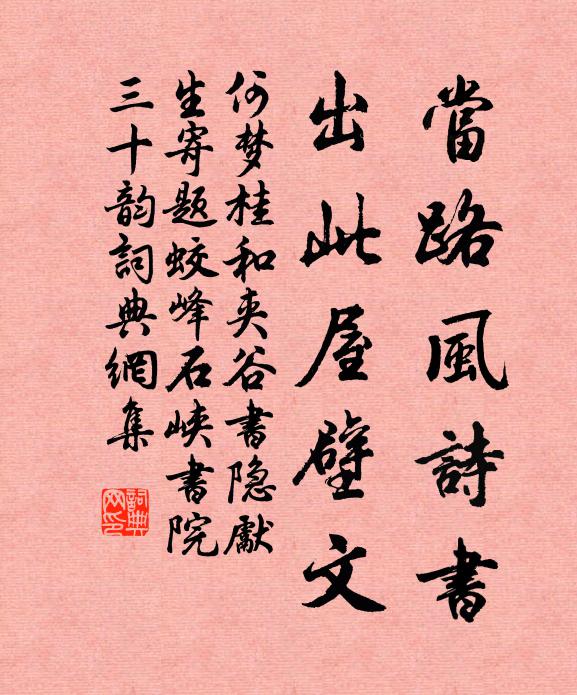 當路風詩書
出此屋壁文
何梦桂和夹谷書隐獻
生寄题蛟峰石峡書院
三十韵詞典網集
詞典網印